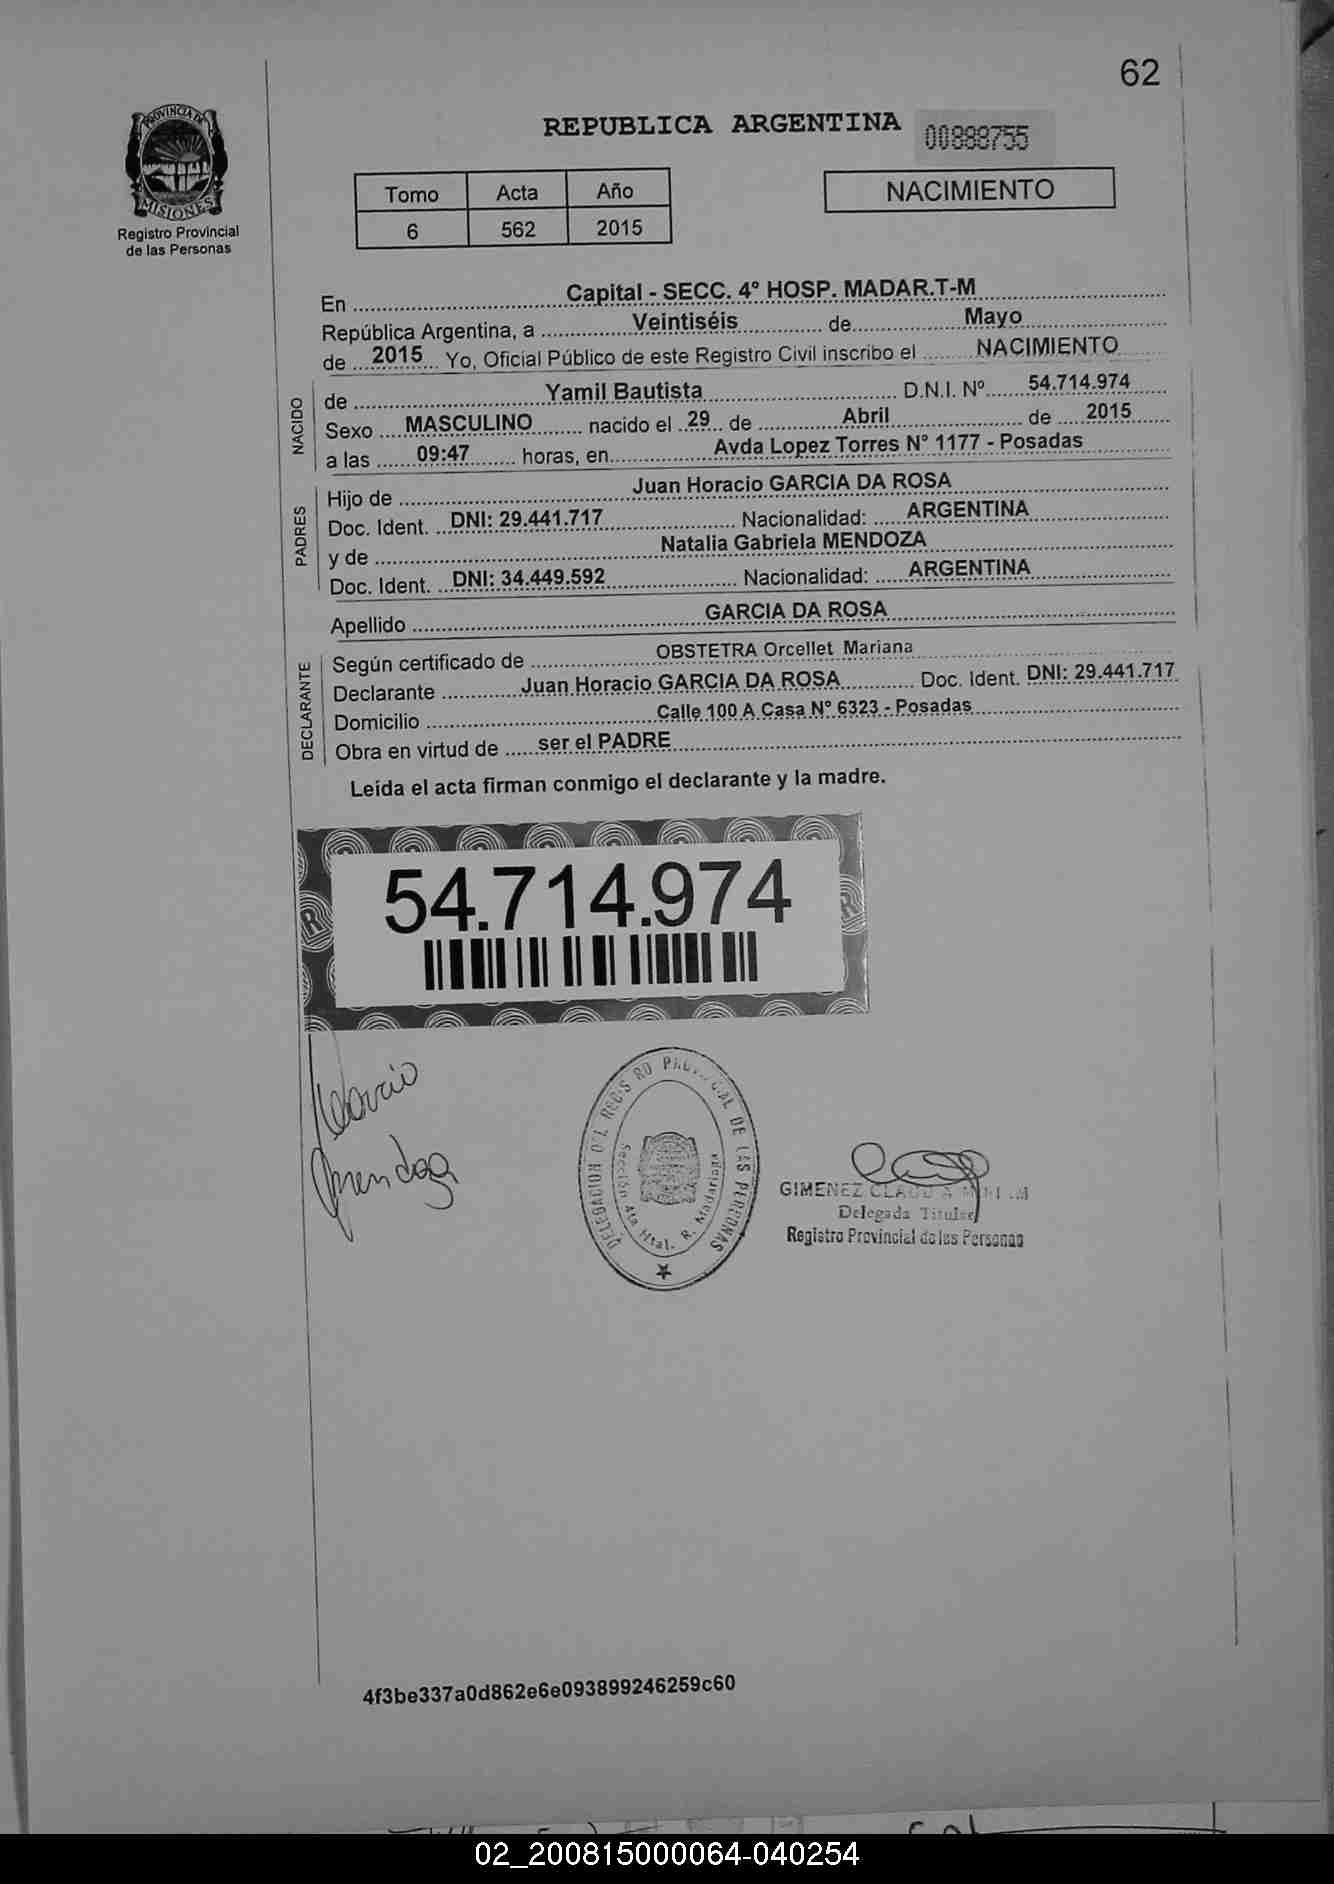 62
PROVINCIA DE
MISIONES
Registro Provincial
de las Personas
REPUBLICA ARGENTINA 00888755
Tomo Acta Año
6 562 2015
NACIMIENTO
En Capital - SECC. 4° HOSP. MADAR.T-M
República Argentina, a Veintiséis de Mayo
de 2015 Yo, Oficial Público de este Registro Civil inscribo el NACIMIENTO
NACIDO
de Yamil Bautista D.N.I. Nº 54.714.974
Sexo MASCULINO nacido el 29 de Abril de 2015
a las 09:47 horas, en Avda Lopez Torres N° 1177 - Posadas
PADRES
Hijo de Juan Horacio GARCIA DA ROSA
Doc. Ident. DNI: 29.441.717 Nacionalidad: ARGENTINA
y de Natalia Gabriela MENDOZA
Doc. Ident. DNI: 34.449.592 Nacionalidad: ARGENTINA
Apellido GARCIA DA ROSA
DECLARANTE
Según certificado de OBSTETRA Orcellet Mariana
Declarante Juan Horacio GARCIA DA ROSA Doc. Ident. DNI: 29.441.717
Domicilio Calle 100 A Casa N° 6323 - Posadas
Obra en virtud de ser el PADRE
Leída el acta firman conmigo el declarante y la madre.
54.714.974
Mendoza
DE LAS PERSONAS
Sección 4ta Htal. R. Madariaga
GIMENEZ
Delegada Titular
Registro Provincial de las Personas
4f3be337a0d862e6e093899246259c60
02_200815000064-040254